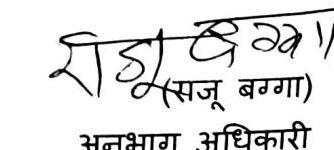 (सजू बग्गा)
अनुभाग अधिकारी